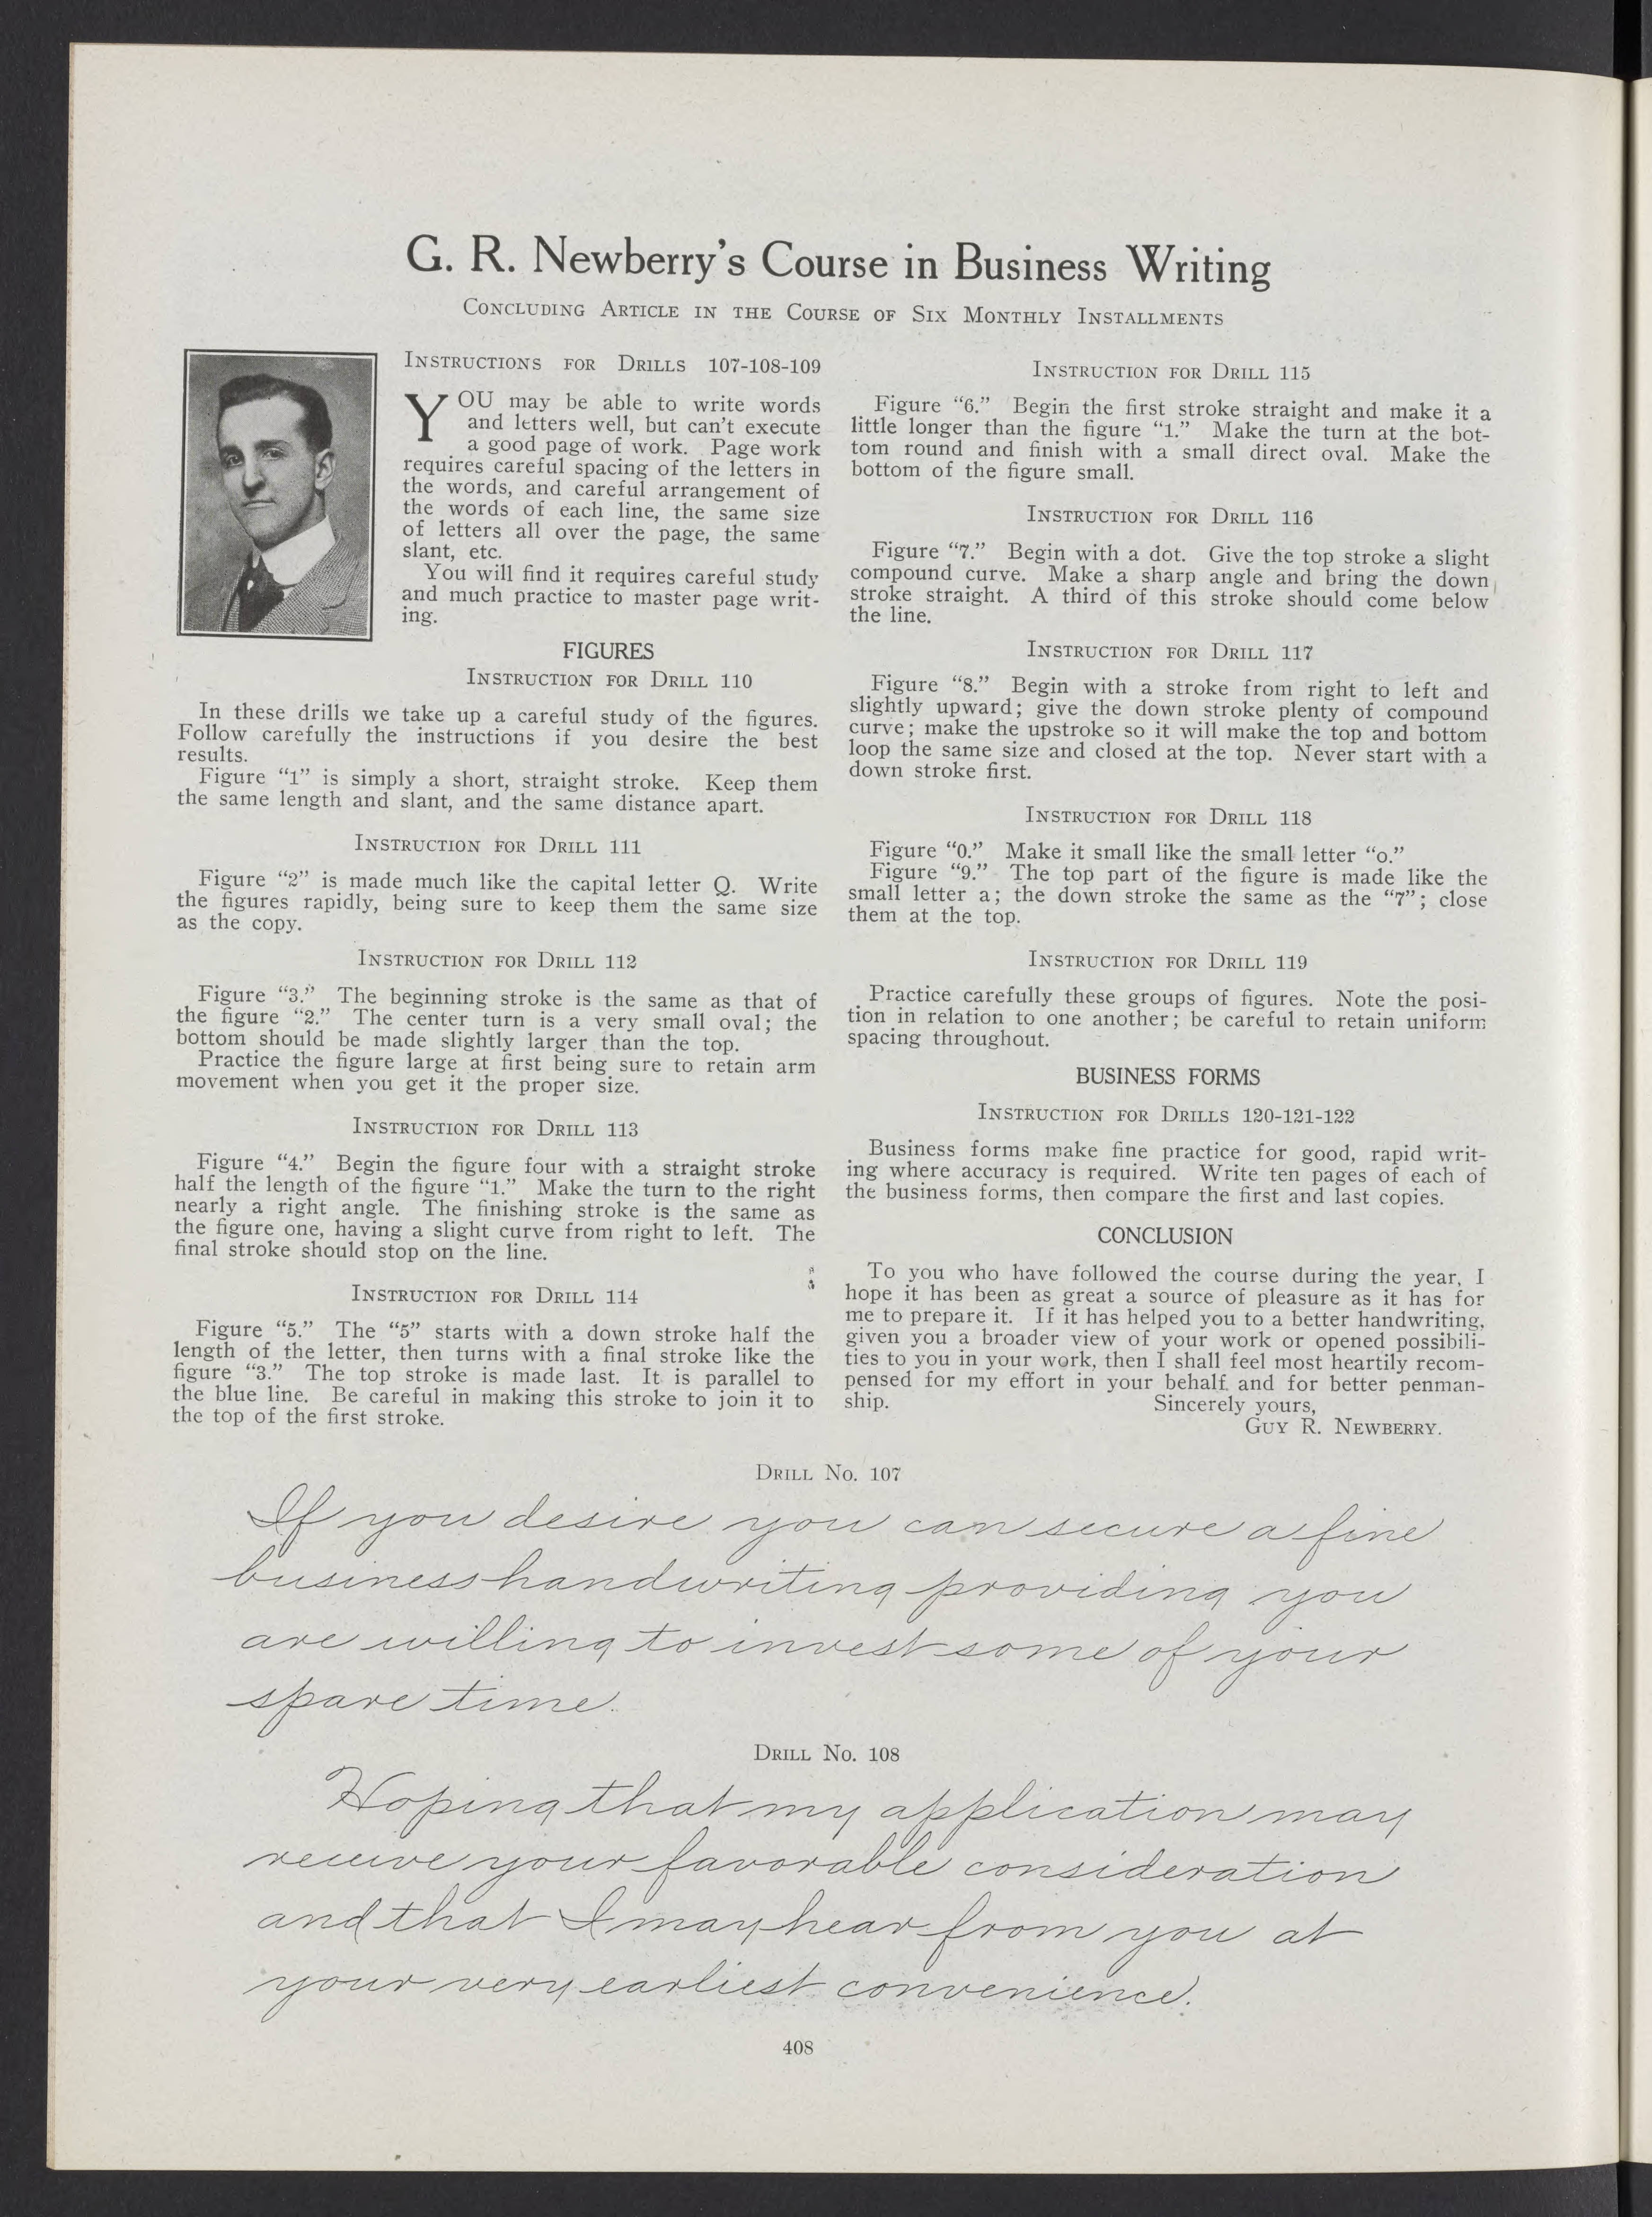 G. R. Newberry's Course in Business Writing
Concluding Article in the Course of Six Monthly Installments
Instructions for Drills 107-108-109
YOU may be able to write words
and letters well, but can't execute
a good page of work. Page work
requires careful spacing of the letters in
the words, and careful arrangement of
the words of each line, the same size
of letters all over the page, the same
slant, etc.
You will find it requires careful study
and much practice to master page writ-
ing.
FIGURES
Instruction for Drill 110
In these drills we take up a careful study of the figures.
Follow carefully the instructions if you desire the best
results.
Figure "1" is simply a short, straight stroke. Keep them
the same length and slant, and the same distance apart.
Instruction for Drill 111
Figure "2" is made much like the capital letter Q. Write
the figures rapidly, being sure to keep them the same size
as the copy.
Instruction for Drill 112
Figure "3." The beginning stroke is the same as that of
the figure "2." The center turn is a very small oval; the
bottom should be made slightly larger than the top.
Practice the figure large at first being sure to retain arm
movement when you get it the proper size.
Instruction for Drill 113
Figure "4." Begin the figure four with a straight stroke
half the length of the figure "1." Make the turn to the right
nearly a right angle. The finishing stroke is the same as
the figure one, having a slight curve from right to left. The
final stroke should stop on the line.
Instruction for Drill 114
Figure "5." The "5" starts with a down stroke half the
length of the letter, then turns with a final stroke like the
figure "3." The top stroke is made last. It is parallel to
the blue line. Be careful in making this stroke to join it to
the top of the first stroke.
Instruction for Drill 115
Figure "6." Begin the first stroke straight and make it a
little longer than the figure "1." Make the turn at the bot-
tom round and finish with a small direct oval. Make the
bottom of the figure small.
Instruction for Drill 116
Figure "7." Begin with a dot. Give the top stroke a slight
compound curve. Make a sharp angle and bring the down
stroke straight. A third of this stroke should come below
the line.
Instruction for Drill 117
Figure "8." Begin with a stroke from right to left and
slightly upward; give the down stroke plenty of compound
curve; make the upstroke so it will make the top and bottom
loop the same size and closed at the top. Never start with a
down stroke first.
Instruction for Drill 118
Figure "0." Make it small like the small letter "o."
Figure "9." The top part of the figure is made like the
small letter a; the down stroke the same as the "7"; close
them at the top.
Instruction for Drill 119
Practice carefully these groups of figures. Note the posi-
tion in relation to one another; be careful to retain uniform
spacing throughout.
BUSINESS FORMS
Instruction for Drills 120-121-122
Business forms make fine practice for good, rapid writ-
ing where accuracy is required. Write ten pages of each of
the business forms, then compare the first and last copies.
CONCLUSION
To you who have followed the course during the year, I
hope it has been as great a source of pleasure as it has for
me to prepare it. If it has helped you to a better handwriting,
given you a broader view of your work or opened possibili-
ties to you in your work, then I shall feel most heartily recom-
pensed for my effort in your behalf and for better penman-
ship. Sincerely yours,
Guy R. Newberry.
Drill No. 107
If you desire you can secure a fine
business handwriting providing you
are willing to invest some of your
spare time.
Drill No. 108
Hoping that my application may
receive your favorable consideration
and that I may hear from you at
your very earliest convenience.
408